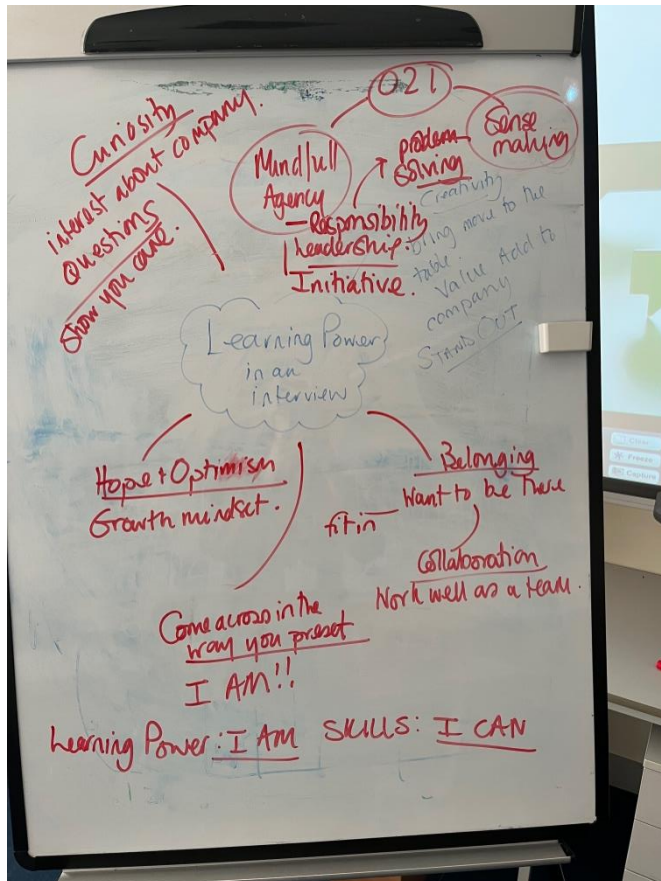 Curiosity
interest about company.
Questions
Show you care.
021
Mindfull
Agency
Sense
making
problem
solving
- Responsibility
Leadership.
Initiative.
Creativity
bring move to the
table.
Value Add to
company
STANDS OUT
Learning Power
in an
interview
Hope + Optimism
Growth mindset.
Belonging
Want to be There
fit in
Collaboration
Work well as a team.
Come across in the
way you preset
I AM!!
Learning Power: I AM SKILLS: I CAN
Freeze
Capture